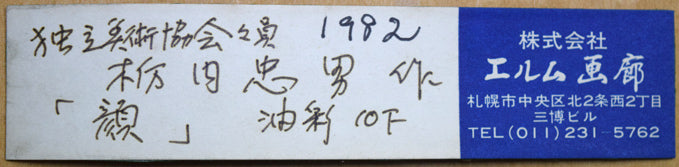 独立美術協会々員 1982
栃内忠男 作
「顔」 油彩 10F
株式会社
エルム画廊
札幌市中央区北2条西2丁目
三博ビル
TEL(011)231-5762